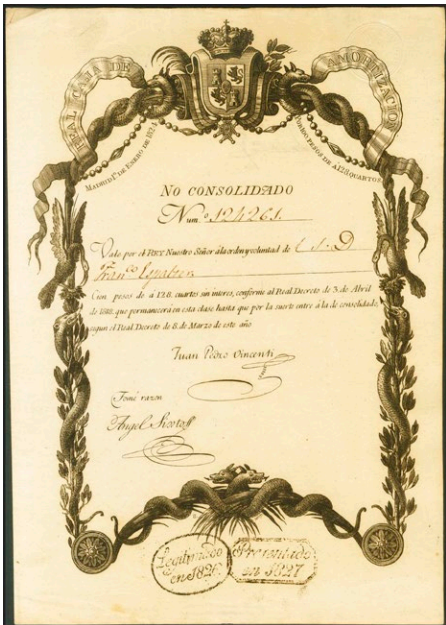 REAL CAJA DE AMORTIZACION
MADRID 1º DE ENERO DE 1824
VALE DE PESOS DE A 128 QUARTOS
NO CONSOLIDADO
Num.º 124261.
Vale por el REY Nuestro Señor á la orden y voluntad de
Franco
Cien pesos de á 128 cuartos sin interes, conforme al Real Decreto de 3 de Abril
de 1818, que permanecerá en esta clase hasta que por la suerte entre á la de consolidado,
segun el Real Decreto de 8 de Marzo de este año
Juan Pedro Vincenti
Tomé razon
Angel
Legitimado
en 1826
Presentado
en 1827